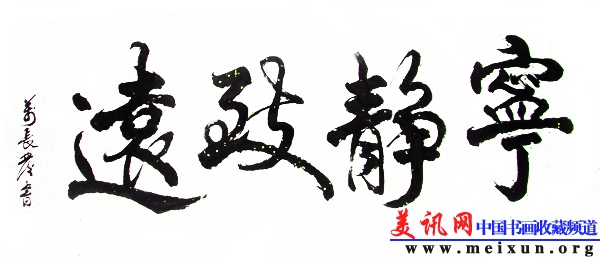 寧靜致遠
美讯网 中国书画收藏频道
www.meixun.org